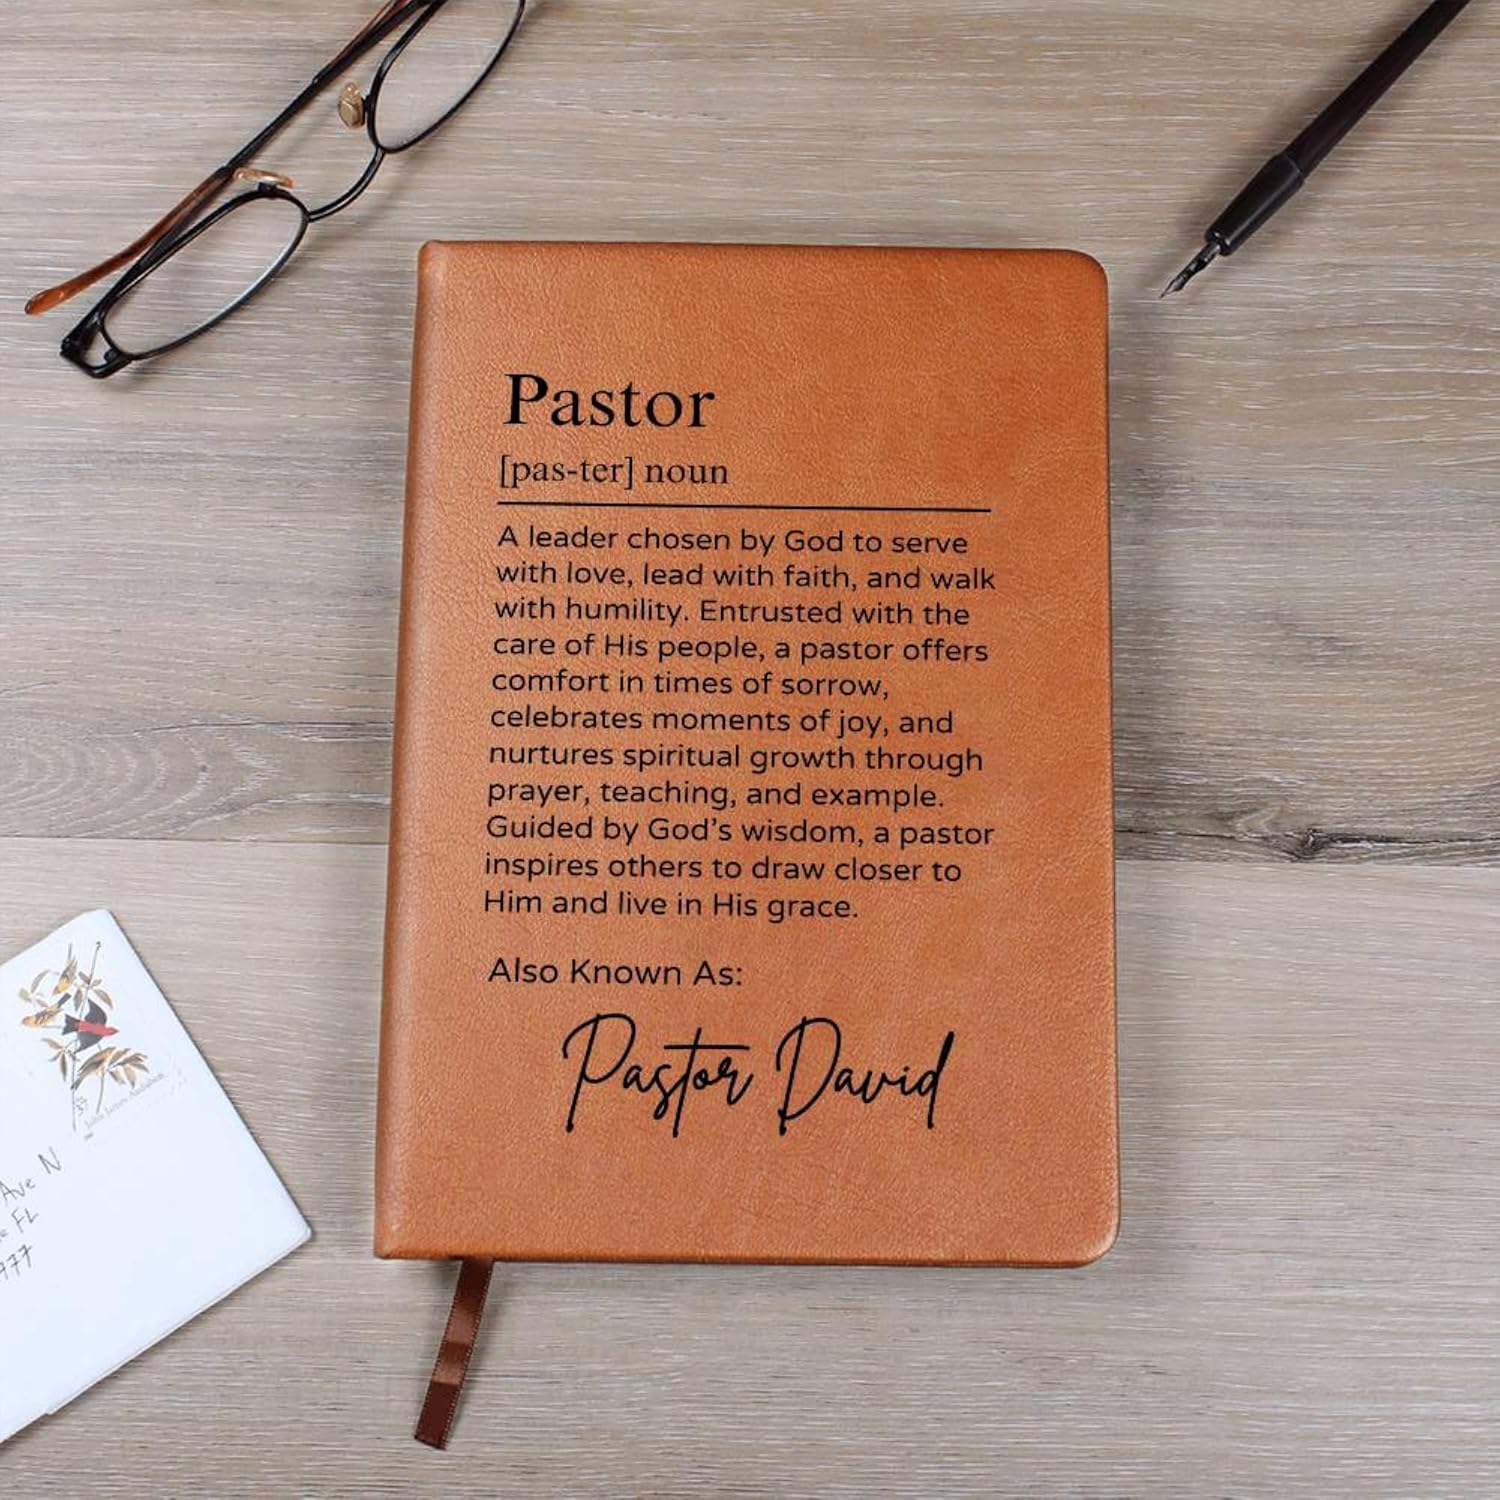 Pastor
[pas-ter] noun
A leader chosen by God to serve
with love, lead with faith, and walk
with humility. Entrusted with the
care of His people, a pastor offers
comfort in times of sorrow,
celebrates moments of joy, and
nurtures spiritual growth through
prayer, teaching, and example.
Guided by God's wisdom, a pastor
inspires others to draw closer to
Him and live in His grace.
Also Known As:
Pastor David
37
John James Audubon
Ave N
FL